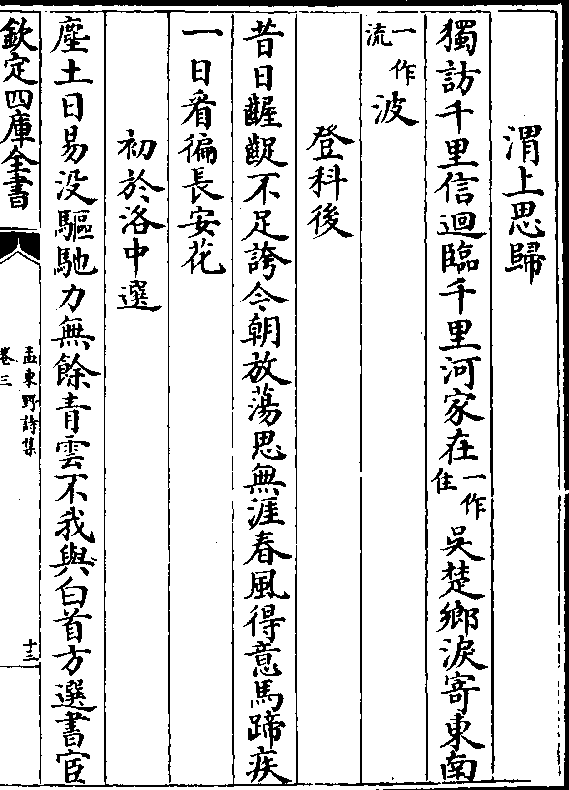 渭上思歸
獨訪千里信迴臨千里河家在一作住吳楚鄉淚寄東南
一作流波
登科後
昔日齷齪不足誇今朝放蕩思無涯春風得意馬蹄疾
一日看徧長安花
初於洛中選
塵土日易没驅馳力無餘青雲不我與白首方選書宦
欽定四庫全書
孟東野詩集
卷三
十三